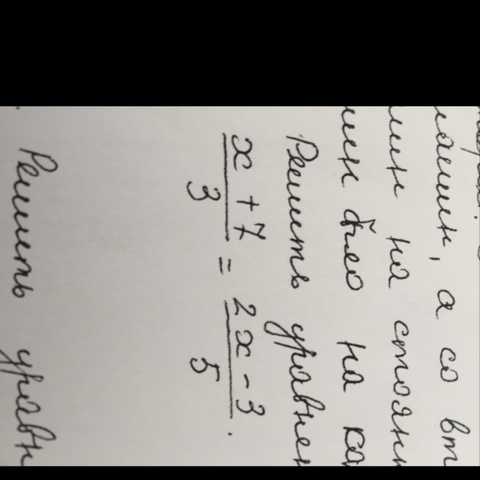 машин, а со вт
шин на стоян
шин было на ка
Решить уравнен
x + 7 / 3 = 2x - 3 / 5 .
Решить уравн